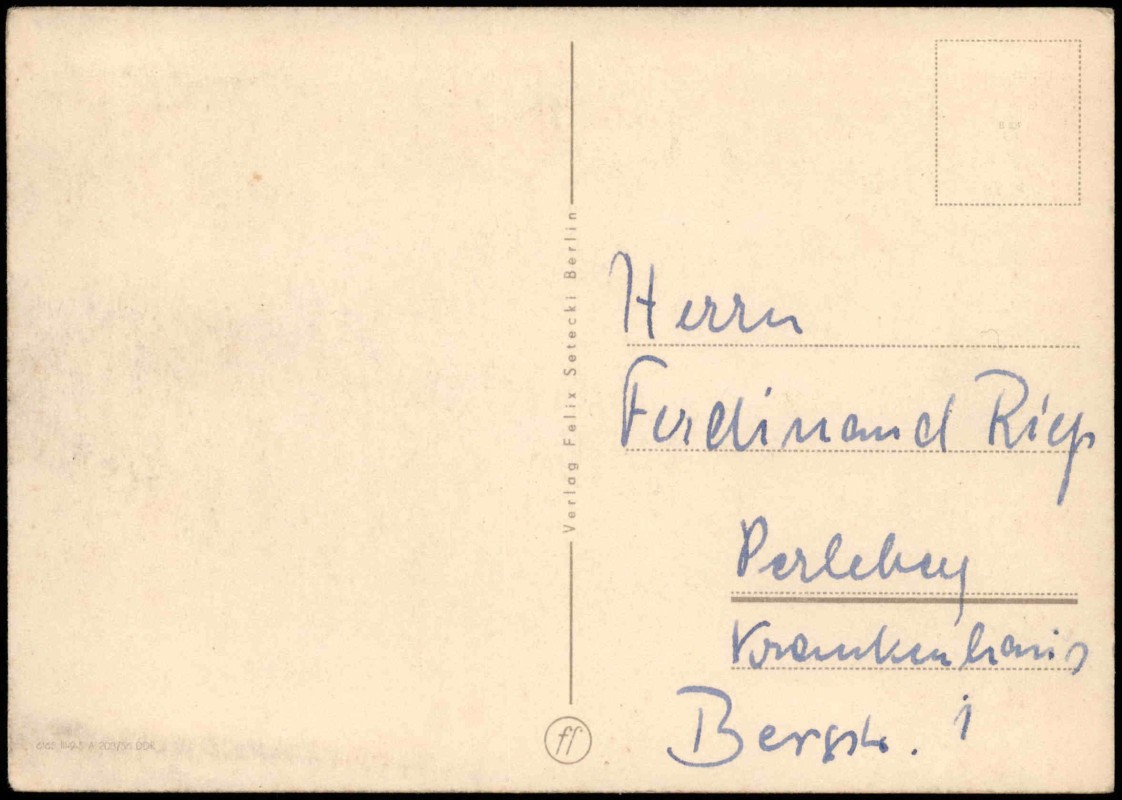 Verlag Felix Setecki Berlin
Herrn
Ferdinand Riep
Perleberg
Krankenhaus
Bergstr. 1
ff